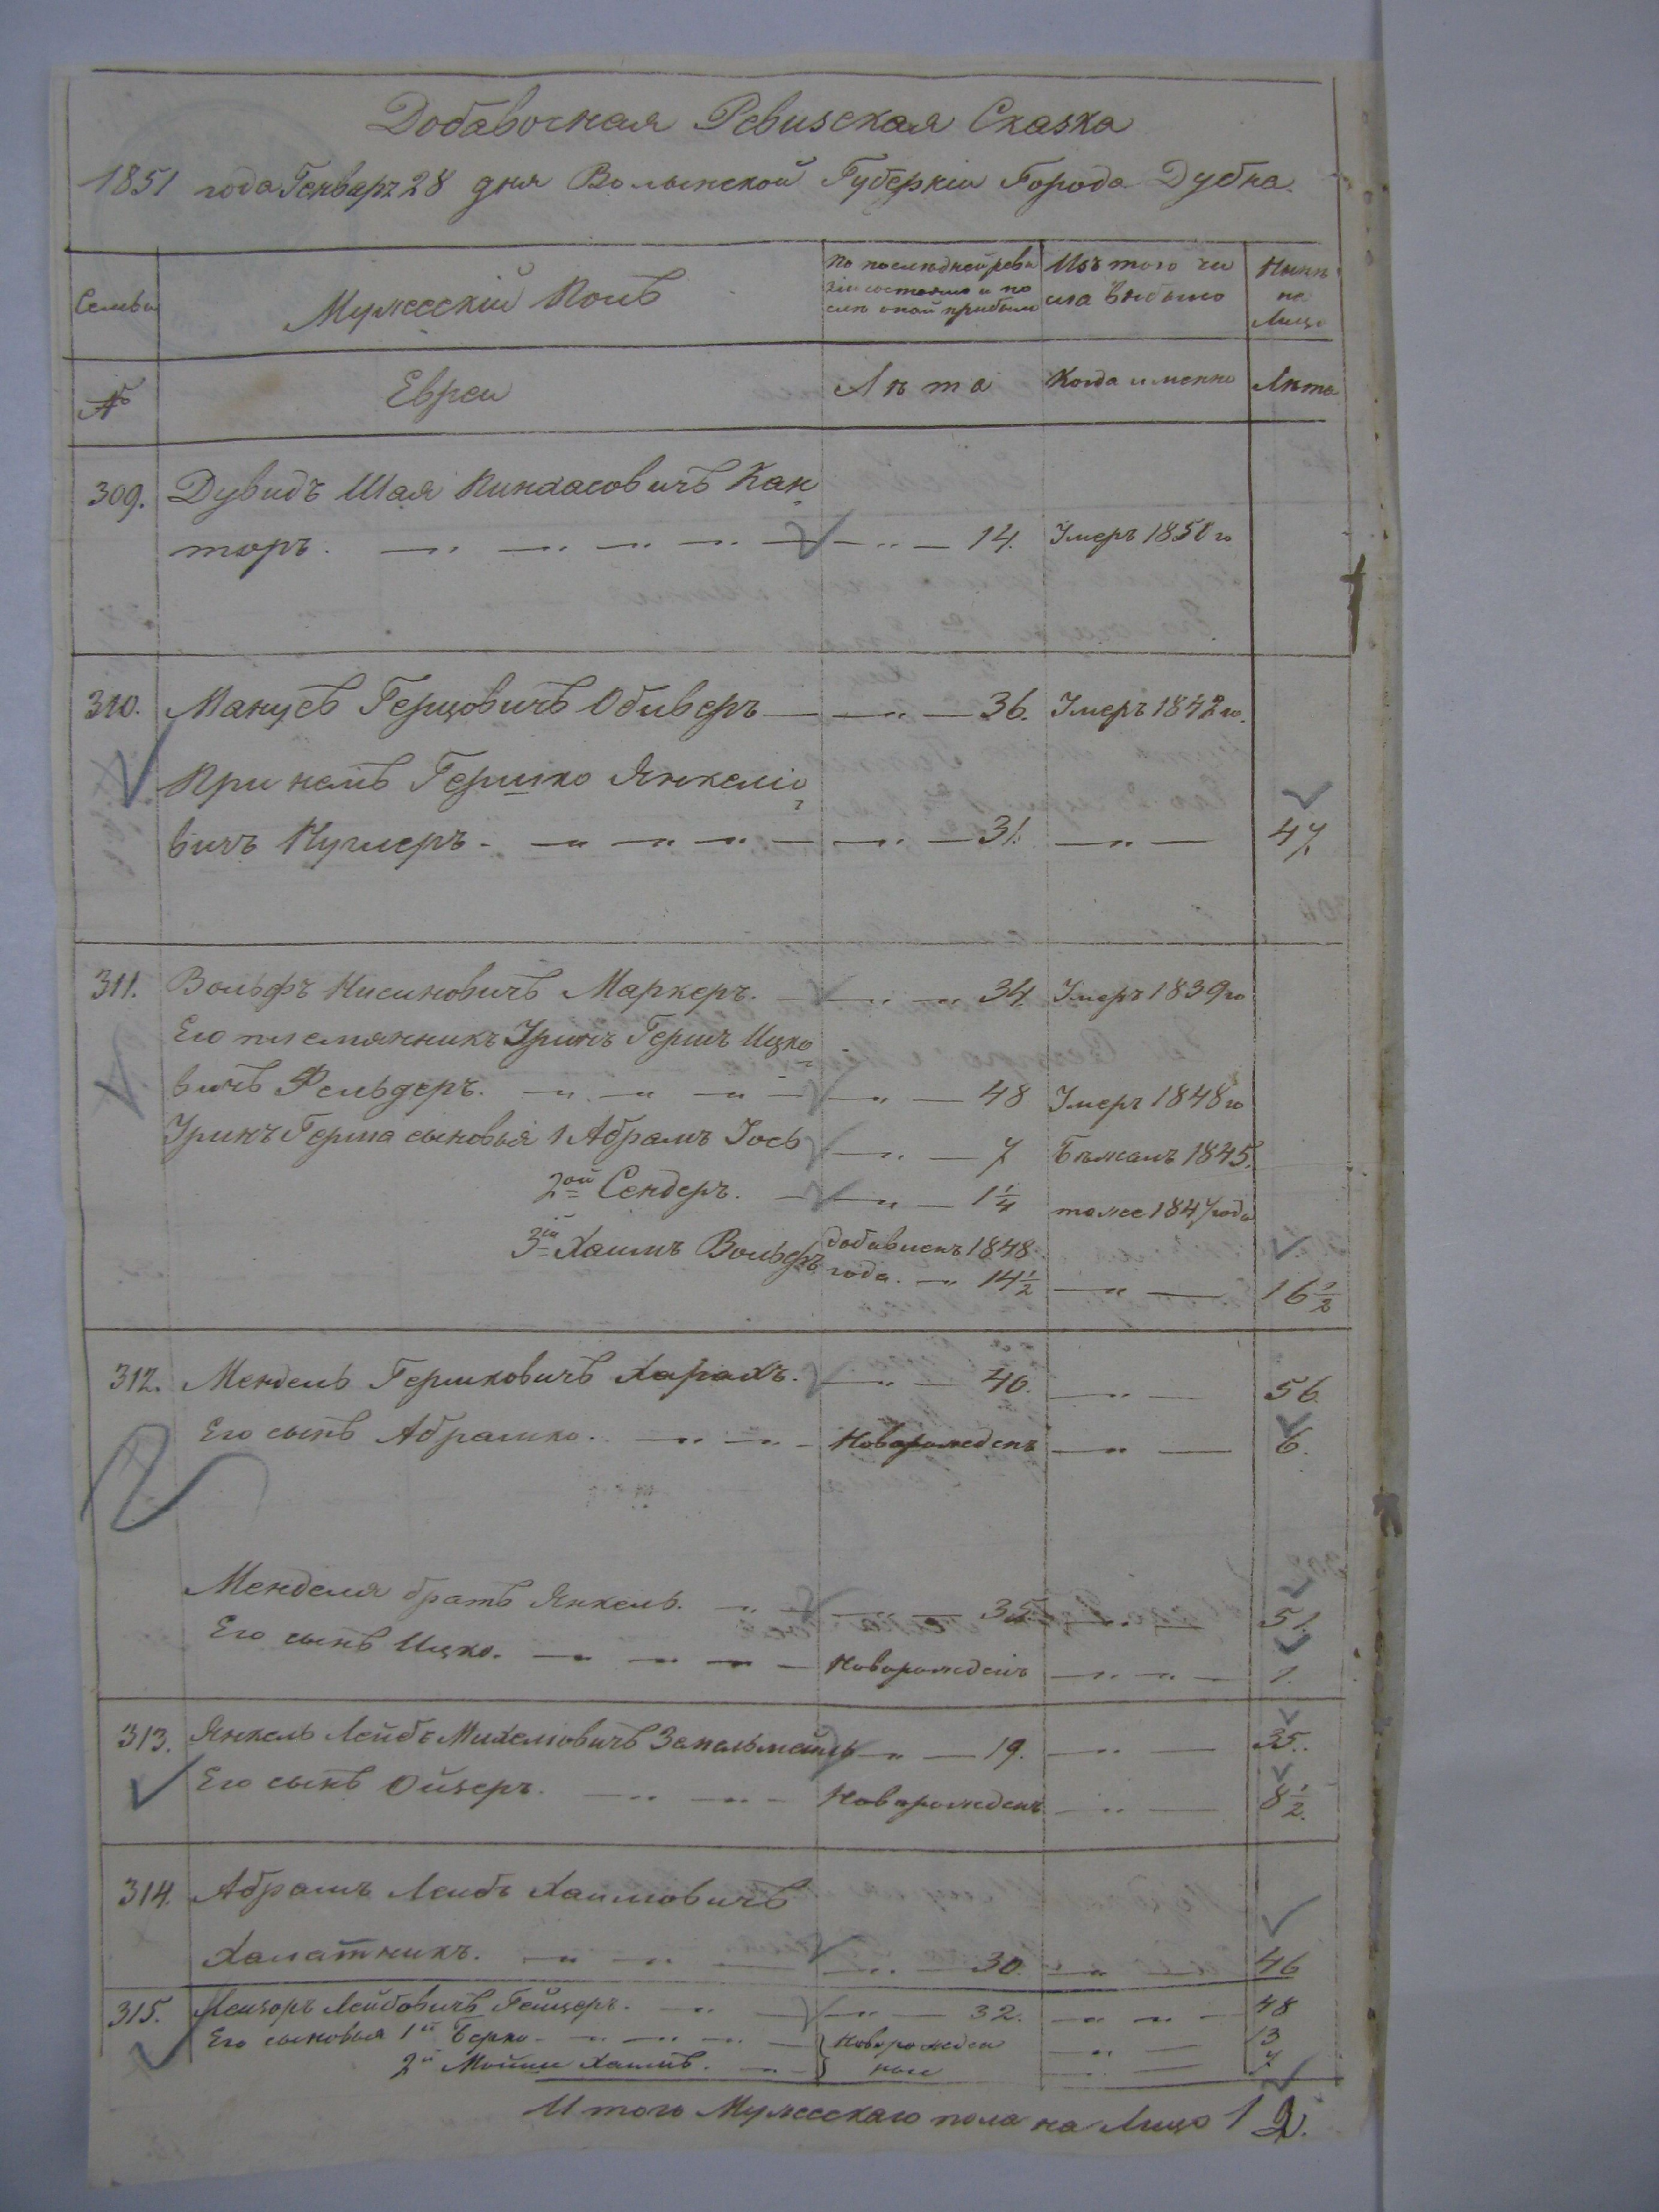 Добавочная Ревизская Сказка
1851 года Генваръ 28 дня Волынской Губерніи Города Дубна.
Семьи
Мужескій Полъ
По последней реви
зіи состояло и по
слѣ оной прибыло
Изъ того чи
сла выбыло
Нынѣ
на
Лицо
№
Евреи
Лѣта
Когда именно
Лѣта
309. Дувидъ Шая Пинхасовичъ Кан
торъ. — „ — 14. Умеръ 1850 го
310. Манусъ Герцовичъ — „ — 36. Умеръ 1842 го.
При немъ Гершко Янкеліо
вичъ Куглеръ — „ — 31. — „ — 47.
311. Вольфъ Нисиновичъ Маркеръ. — „ — 34 Умеръ 1839 го
Его племянникъ Гершъ Ицко
вичъ Фельдеръ. — „ — 48 Умеръ 1848 го
Герша сыновья 1 Абрамъ Іось — „ — 7 Бѣжалъ 1845.
2ой Сендеръ. — „ — 1¼ тоже 1847 года
3ій Хаимъ Вольфъ добавленъ 1848
года. — „ 14½ — „ — 16½
312. Мендель Гершковичъ Харахъ. — „ — 40. — „ — 56.
Его сынъ Абрамко. — „ — Новорожденъ — „ — 6.
Менделя братъ Янкель. — „ — 35 — „ — 51.
Его сынъ Ицко. — „ — Новорожденъ — „ — 1.
313. Янкель Лейбъ Михелювичъ — „ — 19. — „ — 35.
Его сынъ Ойзеръ. — „ — Новорожденъ — „ — 8½.
314. Абрамъ Лейбъ Хаимовичъ
Халатникъ. — „ — 30. — „ — 46
315. Лейбовичъ — „ — 32. — „ — 48
Его сыновья 1й Берко — „ — } Новорожден — „ — 13
2й Мошко Хаимъ. — „ — } ные — „ — 7
Итого Мужескаго пола на Лицо 12.